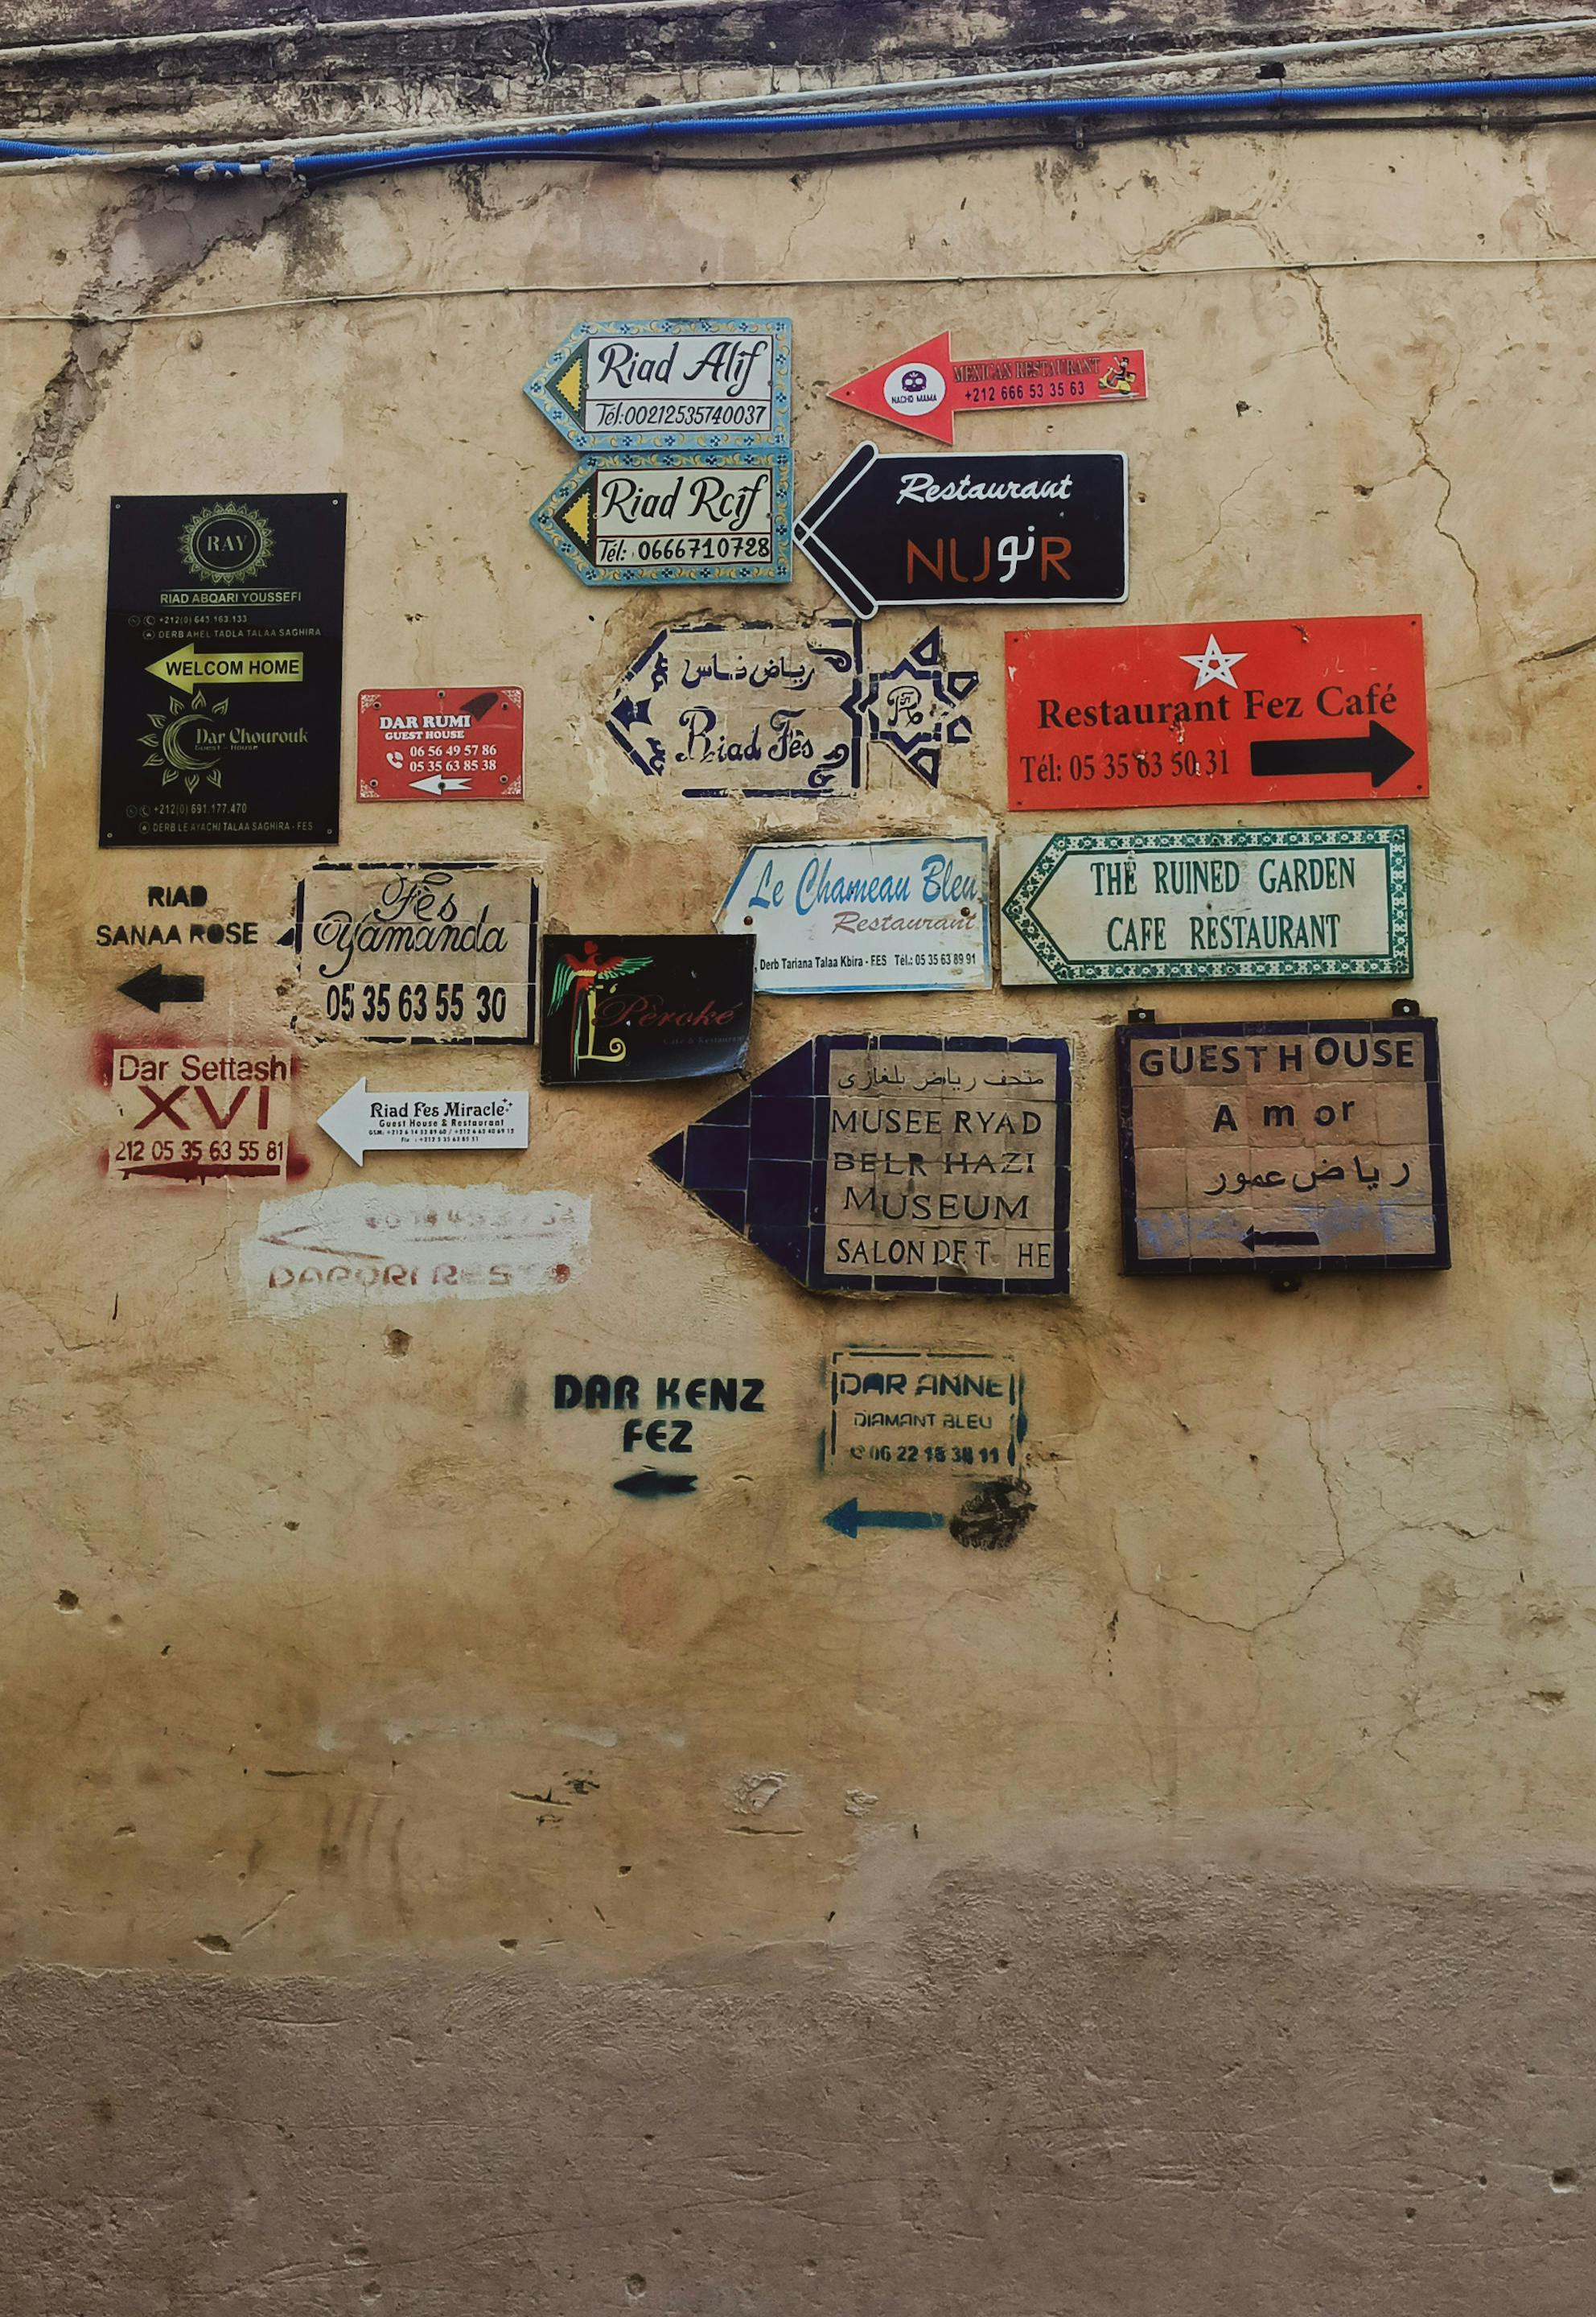 Riad Alif
Tél:00212535740037
NACHO MAMA
MEXICAN RESTAURANT
+212 666 53 35 63
Riad Rcif
Tél: 0666710728
Restaurant
NUنوR
RAY
RIAD ABQARI YOUSSEFI
+212(0) 643.163.133
DERB AHEL TADLA TALAA SAGHIRA
WELCOM HOME
Dar Chourouk
Guest - House
+212(0) 691.177.470
DERB LE AYACHI TALAA SAGHIRA - FES
DAR RUMI
GUEST HOUSE
06 56 49 57 86
05 35 63 85 38
رياض فاس
Riad Fès
Restaurant Fez Café
Tél: 05 35 63 50 31
RIAD
SANAA ROSE
Fès
Yamanda
05 35 63 55 30
Le Chameau Bleu
Restaurant
Derb Tariana Talaa Kbira - FES Tél.: 05 35 63 89 91
THE RUINED GARDEN
CAFE RESTAURANT
Pèroké
Café & Restaurant
Dar Settash
XVI
212 05 35 63 55 81
Riad Fes Miracle
Guest House & Restaurant
متحف رياض بلغازي
MUSEE RYAD
BELR HAZI
MUSEUM
SALON DE T HE
GUEST HOUSE
Amor
رياض عمور
DAR KENZ
FEZ
DAR ANNE
DIAMANT BLEU
06 22 15 38 11